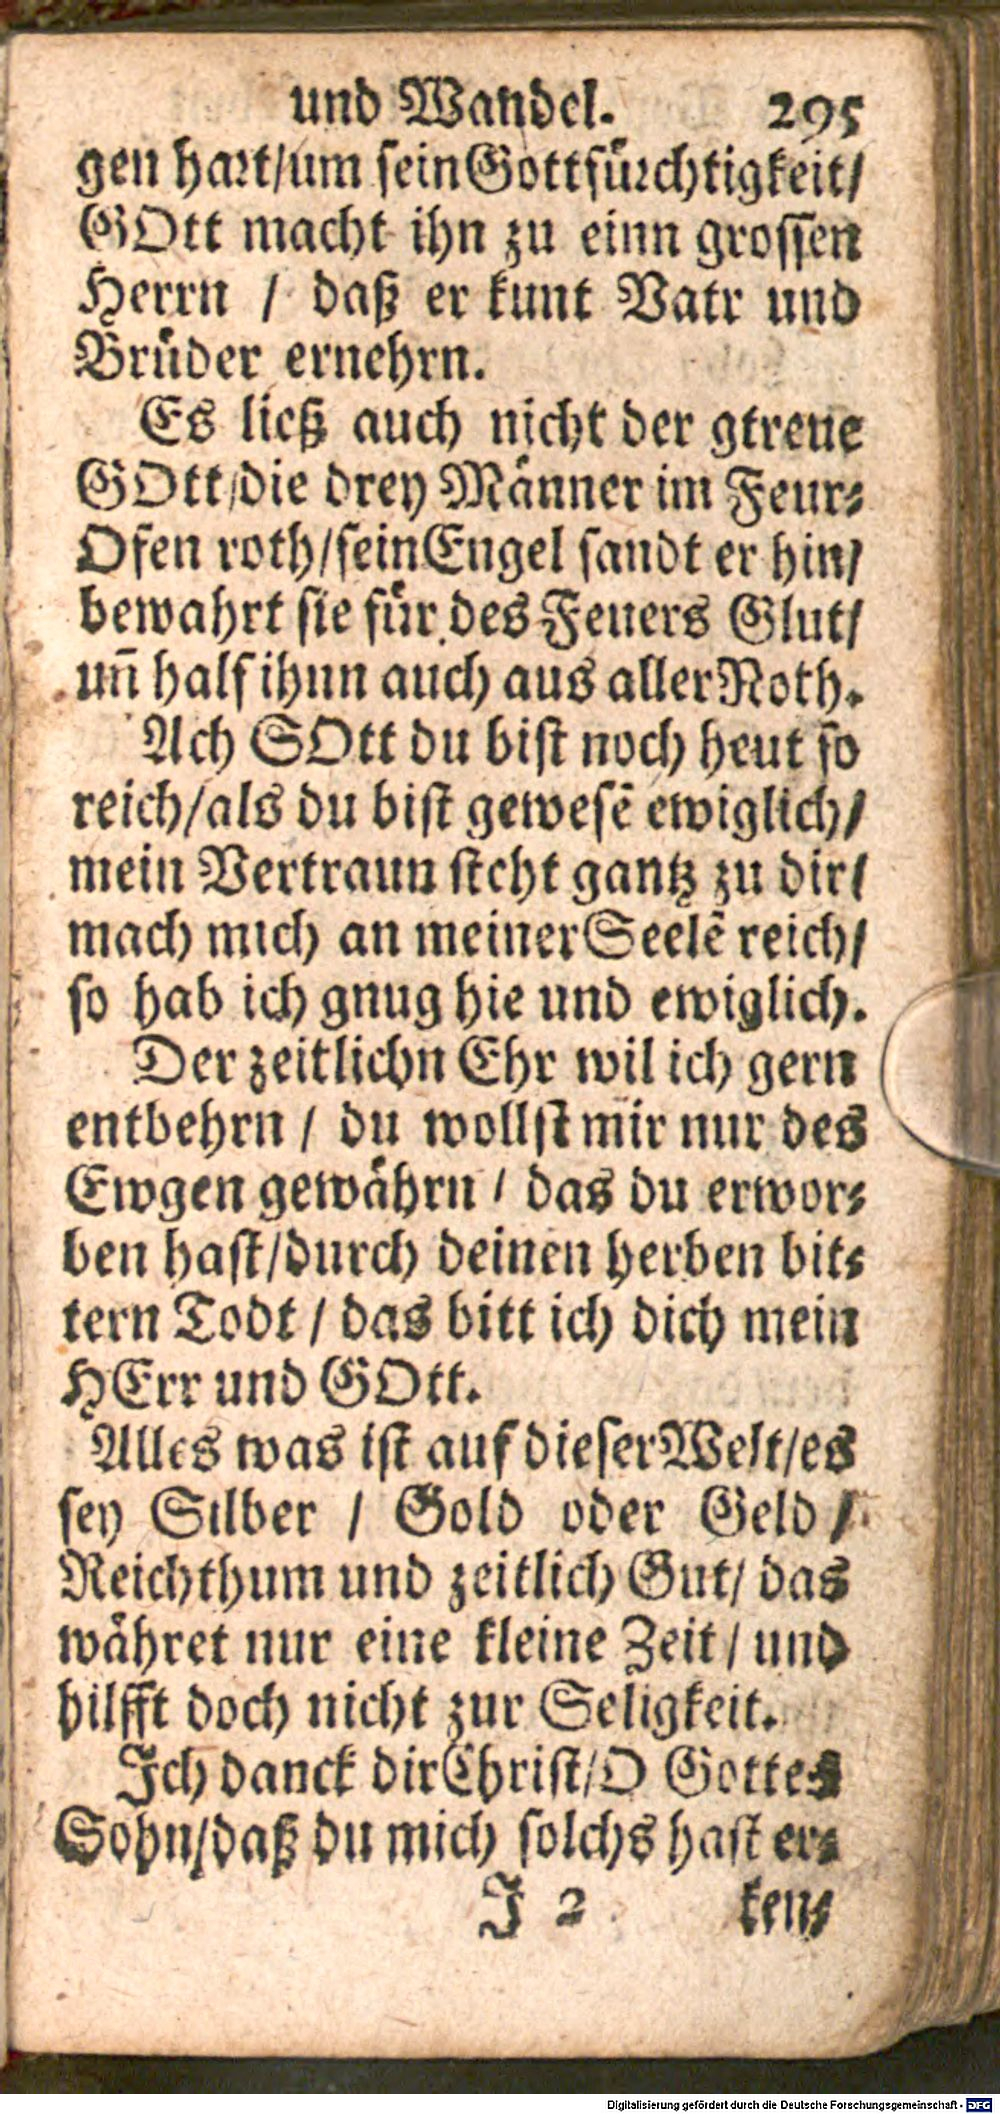 und Wandel. 295
gen hart/um sein Gottfürchtigkeit/
GOtt macht ihn zu einn grossen
Herrn / daß er kunt Vatr und
Brüder ernehrn.
Es ließ auch nicht der gtreue
GOtt/die drey Männer im Feur-
Ofen roth/sein Engel sandt er hin/
bewahrt sie für des Feuers Glut/
un̄ half ihnn auch aus aller Noth.
Ach GOtt du bist noch heut so
reich/als du bist gewesē ewiglich/
mein Vertraun steht gantz zu dir/
mach mich an meiner Seelē reich/
so hab ich gnug hie und ewiglich.
Der zeitlichn Ehr wil ich gern
entbehrn / du wollst mir nur des
Ewgen gewährn / das du erwor-
ben hast/durch deinen herben bit-
tern Todt / das bitt ich dich mein
HErr und GOtt.
Alles was ist auf dieser Welt/es
sey Silber / Gold oder Geld /
Reichthum und zeitlich Gut/ das
währet nur eine kleine Zeit / und
hilfft doch nicht zur Seligkeit.
Ich danck dir Christ/O Gottes
Sohn/daß du mich solchs hast er-
J 2 ken-
Digitalisierung gefördert durch die Deutsche Forschungsgemeinschaft - DFG